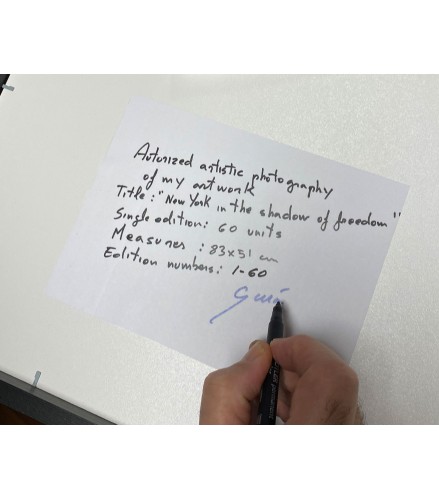 Autorized artistic photography
of my artwork
Title: "New York in the shadow of freedom"
Single edition: 60 units
Measures: 83x51 cm
Edition numbers: 1-60